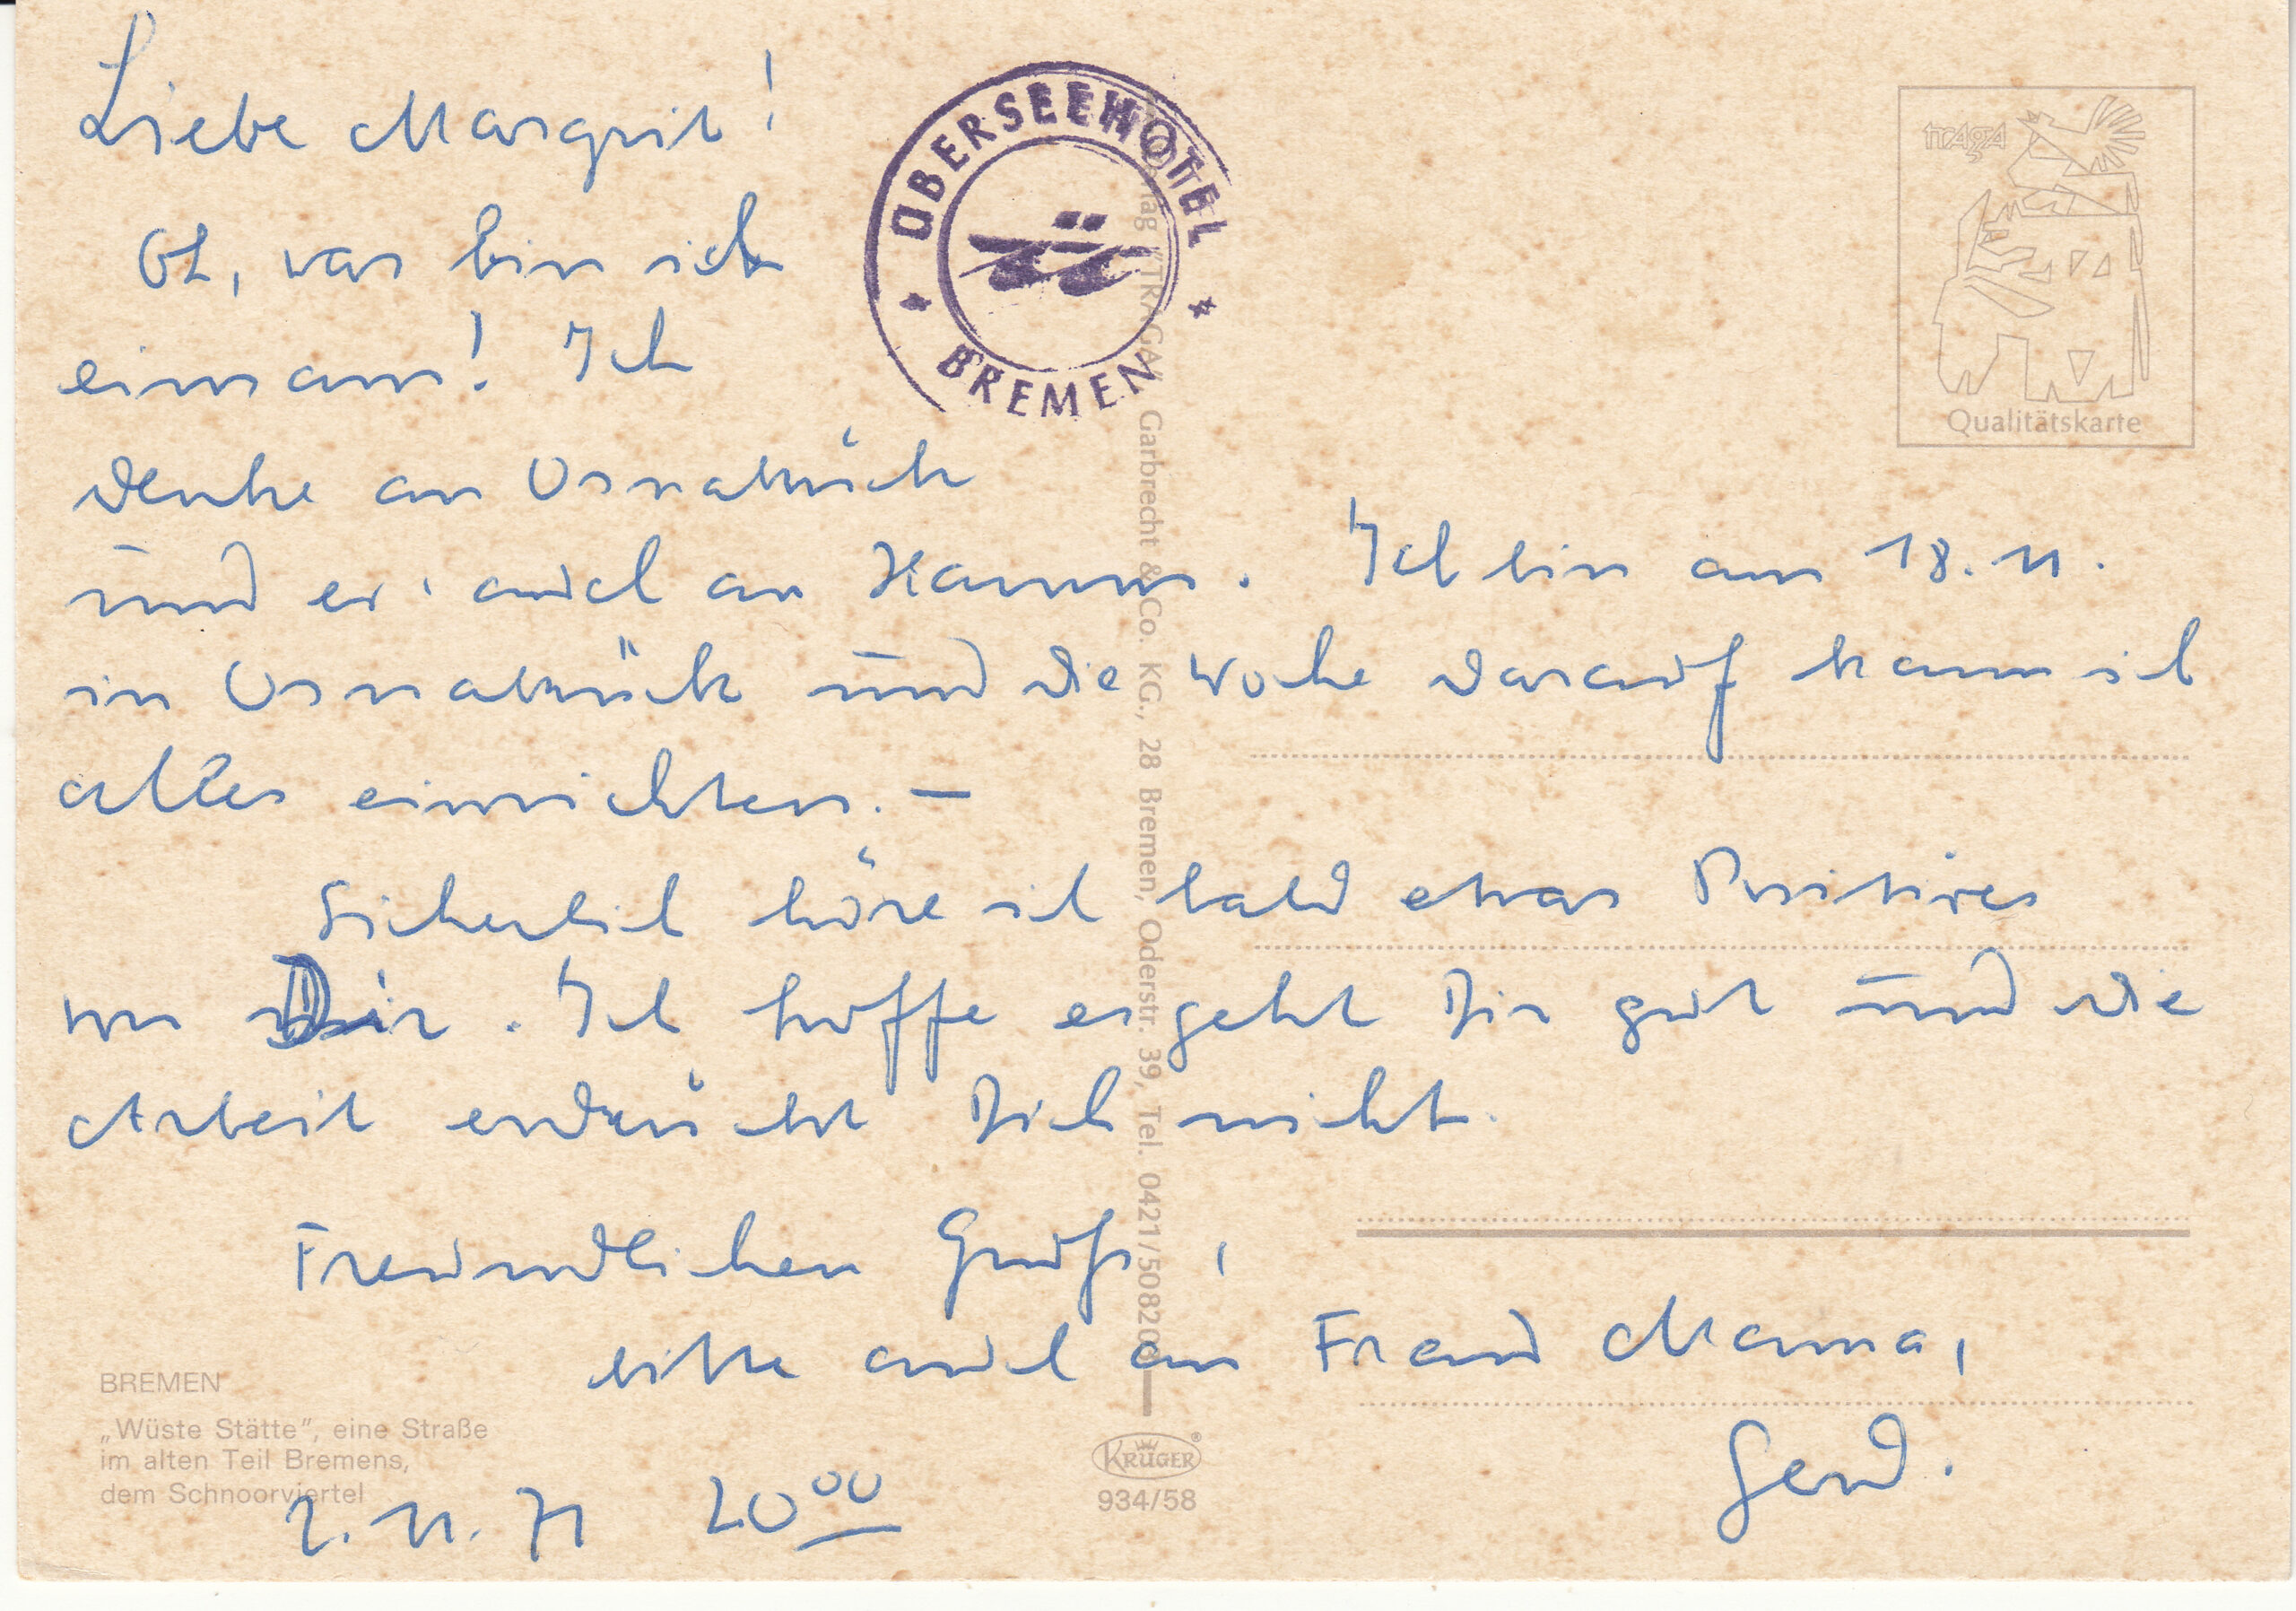 Liebe Margrit!
Oh, was bin ich
einsam! Ich
denke an Osnabrück
und ev. auch an Hamm. Ich bin am 18. 11.
in Osnabrück und die Woche darauf kann ich
alles einrichten. –
Sicherlich höre ich bald etwas Positives
von Dir. Ich hoffe es geht Dir gut und die
Arbeit erdrückt Dich nicht.
Freundlichen Gruß,
bitte auch an Frau Mama,
Gerd.
2. 11. 71 20⁰⁰
ÜBERSEEHOTEL
BREMEN
traga
Qualitätskarte
"TRAGA" Garbrecht & Co. KG., 28 Bremen, Oderstr. 39, Tel. 0421/508208
BREMEN
„Wüste Stätte”, eine Straße
im alten Teil Bremens,
dem Schnoorviertel
KRÜGER®
934/58